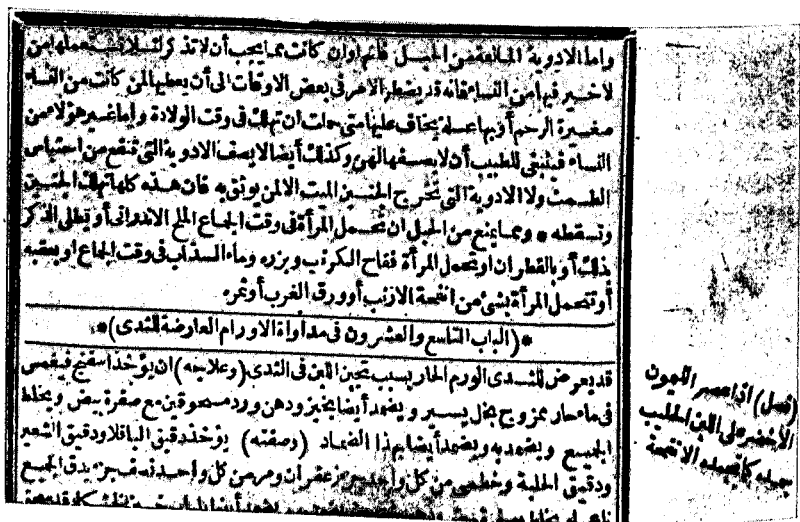 واما الادوية المانعة من الحبل فانها وان كانت مما يجب أن لا تذكر لئلا يستعملها من
لا خير فيها من النساء فانه قد يضطر الامر فى بعض الاوقات الى أن يعطيها لمن كانت من النساء
صغيرة الرحم أو بها علة يخاف عليها متى حملت ان تهلك فى وقت الولادة واما غير هؤلاء من
النساء فينبغى للطبيب أن لا يصفها لهن وكذلك أيضا لا يصف الادوية التى تنفع من احتباس
الطمث ولا الادوية التى تخرج الجنين الميت الا لمن يوثق به فان هذه كلها تهلك الجنين
وتسقطه * ومما يمنع من الحبل ان تحتمل المرأة فى وقت الجماع الملح الاندرانى أو يطلى الذكر
بذلك أو بالقطران او تحتمل المرأة فقاح الكرنب وبزره وماء السذاب فى وقت الجماع او بعقبه
أو تتحمل المرأة بشئ من انفحة الارنب أو ورق الغرب أو ثمره
*(الباب التاسع والعشرون فى مداواة الاورام العارضة للثدى)*
قد يعرض للثدى الورم الحار بسبب تجبن اللبن فى الثدى (وعلاجه) ان يؤخذ اسفنج فيغمس
فى ماء حار ممزوج بخل يسير ويضمد أيضا بخبز ودهن ورد مسحوقين مع صفرة بيض ويخلط
الجميع ويضمد به ويضمد أيضا بهذا الضماد (وصفته) يؤخذ دقيق الباقلا ودقيق الشعير
ودقيق الحلبة وخطمى من كل واحد جزء زعفران ومر من كل واحد نصف جزء يدق الجميع
(فصل) اذا عصر الليمون
الاخضر على اللبن الحليب
جمده كما تجمده الانفحة